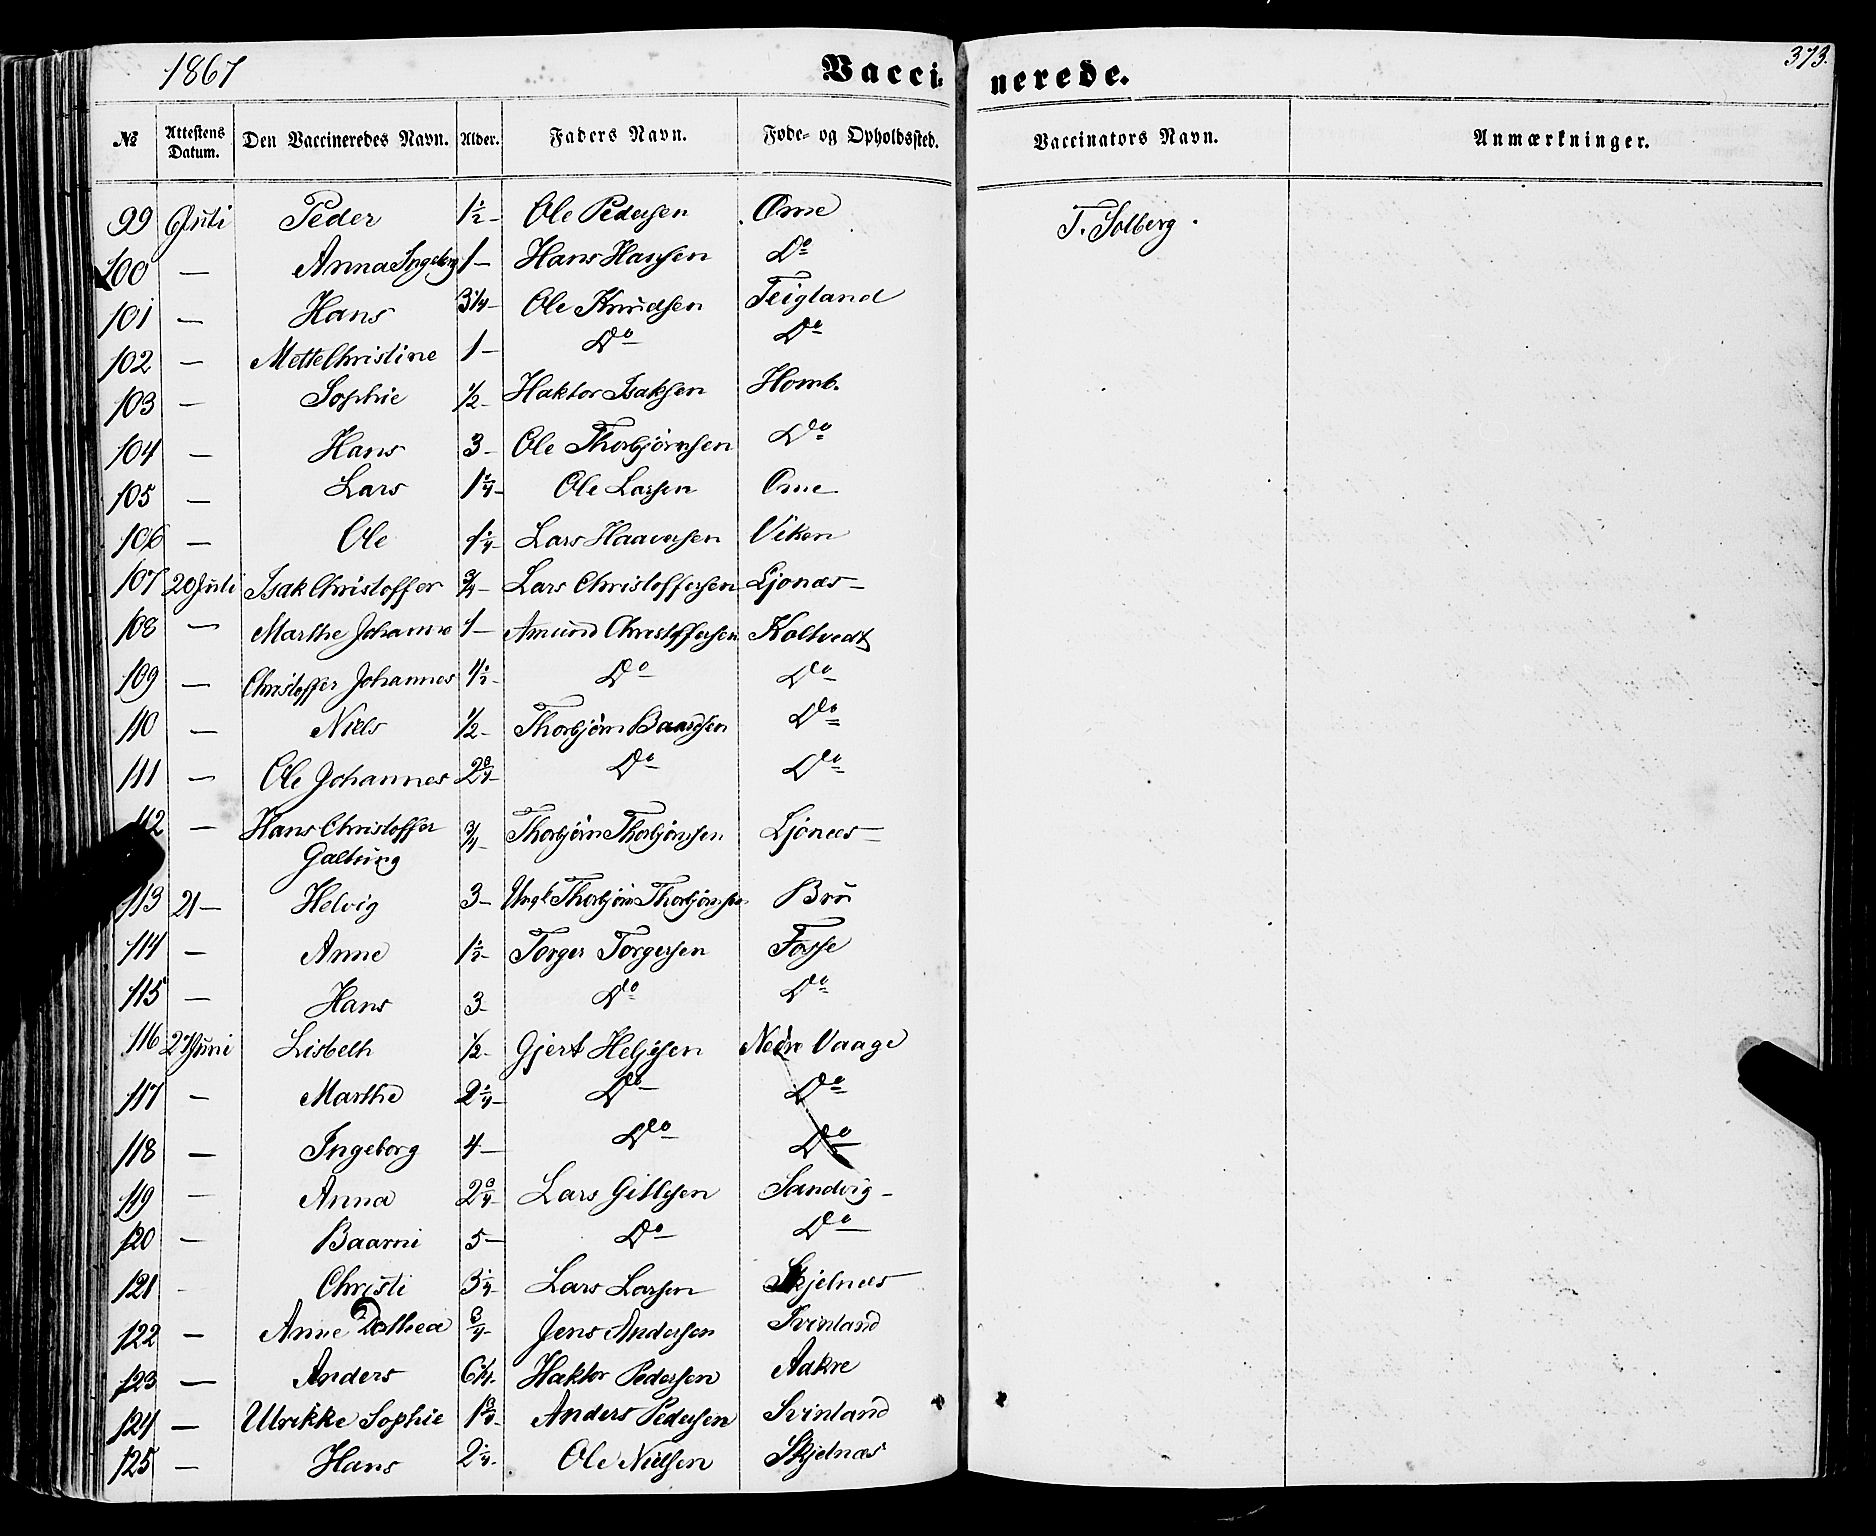 1867 Vaccinerede. 373.
№ Attestens Datum. Den Vaccineredes Navn. Alder. Faders Navn. Føde- og Opholdssted. Vaccinators Navn. Anmærkninger.
99 Juli Peder 1½ - Ole Pedersen Ome T. Solberg.
100 — Anna Ingeborg 1 - Hans Hansen Do
101 — Hans 3¼ - Ole Knudsen Teigland
102 — Mette Christine 1 - Do Do
103 — Sophie ½ - Haktor Isaksen Homb.
104 — Hans 3 - Ole Thorbjørnsen Do
105 — Lars 1¼ - Ole Larsen Ome
106 — Ole 1¼ - Lars Haaversen Viken
107 20 Juli Isak Christoffer ¾ - Lars Christoffersen Ljonæs —
108 — Marthe Johanne 1 - Amund Christoffersen Koltvedt
109 — Christoffer Johannes 1½ - Do Do
110 — Niels ½ - Thorbjørn Baardsen Do
111 — Ole Johannes 2¾ - Do Do
112 — Hans Christoffer ¾ - Thorbjørn Thorbjørnsen Ljonæs —
Galtung
113 21 — Helvig 3 - Ungk. Thorbjørn Thorbjørnsen Bru
114 — Anne 1½ - Torger Torgersen Fosse
115 — Hans 3 - Do Do
116 27 Juni Lisbeth ½ - Gjert Heljesen Nedre Vaage
117 — Marthe 2¼ - Do Do
118 — Ingeborg 4 — Do Do
119 — Anna 2¾ - Lars Gitlesen Sandvig -
120 — Baarni 5 — Do Do
121 - Christi 3¼ - Lars Larsen Skjelnæs
122 — Anne Dothea ¾ - Jens Andersen Svinland
123 — Anders 6¼ - Haktor Pedersen Aakre
124 — Ulrikke Sophie 1¾ - Anders Pedersen Svinland
125 — Hans 2¼ - Ole Nielsen Skjelnæs